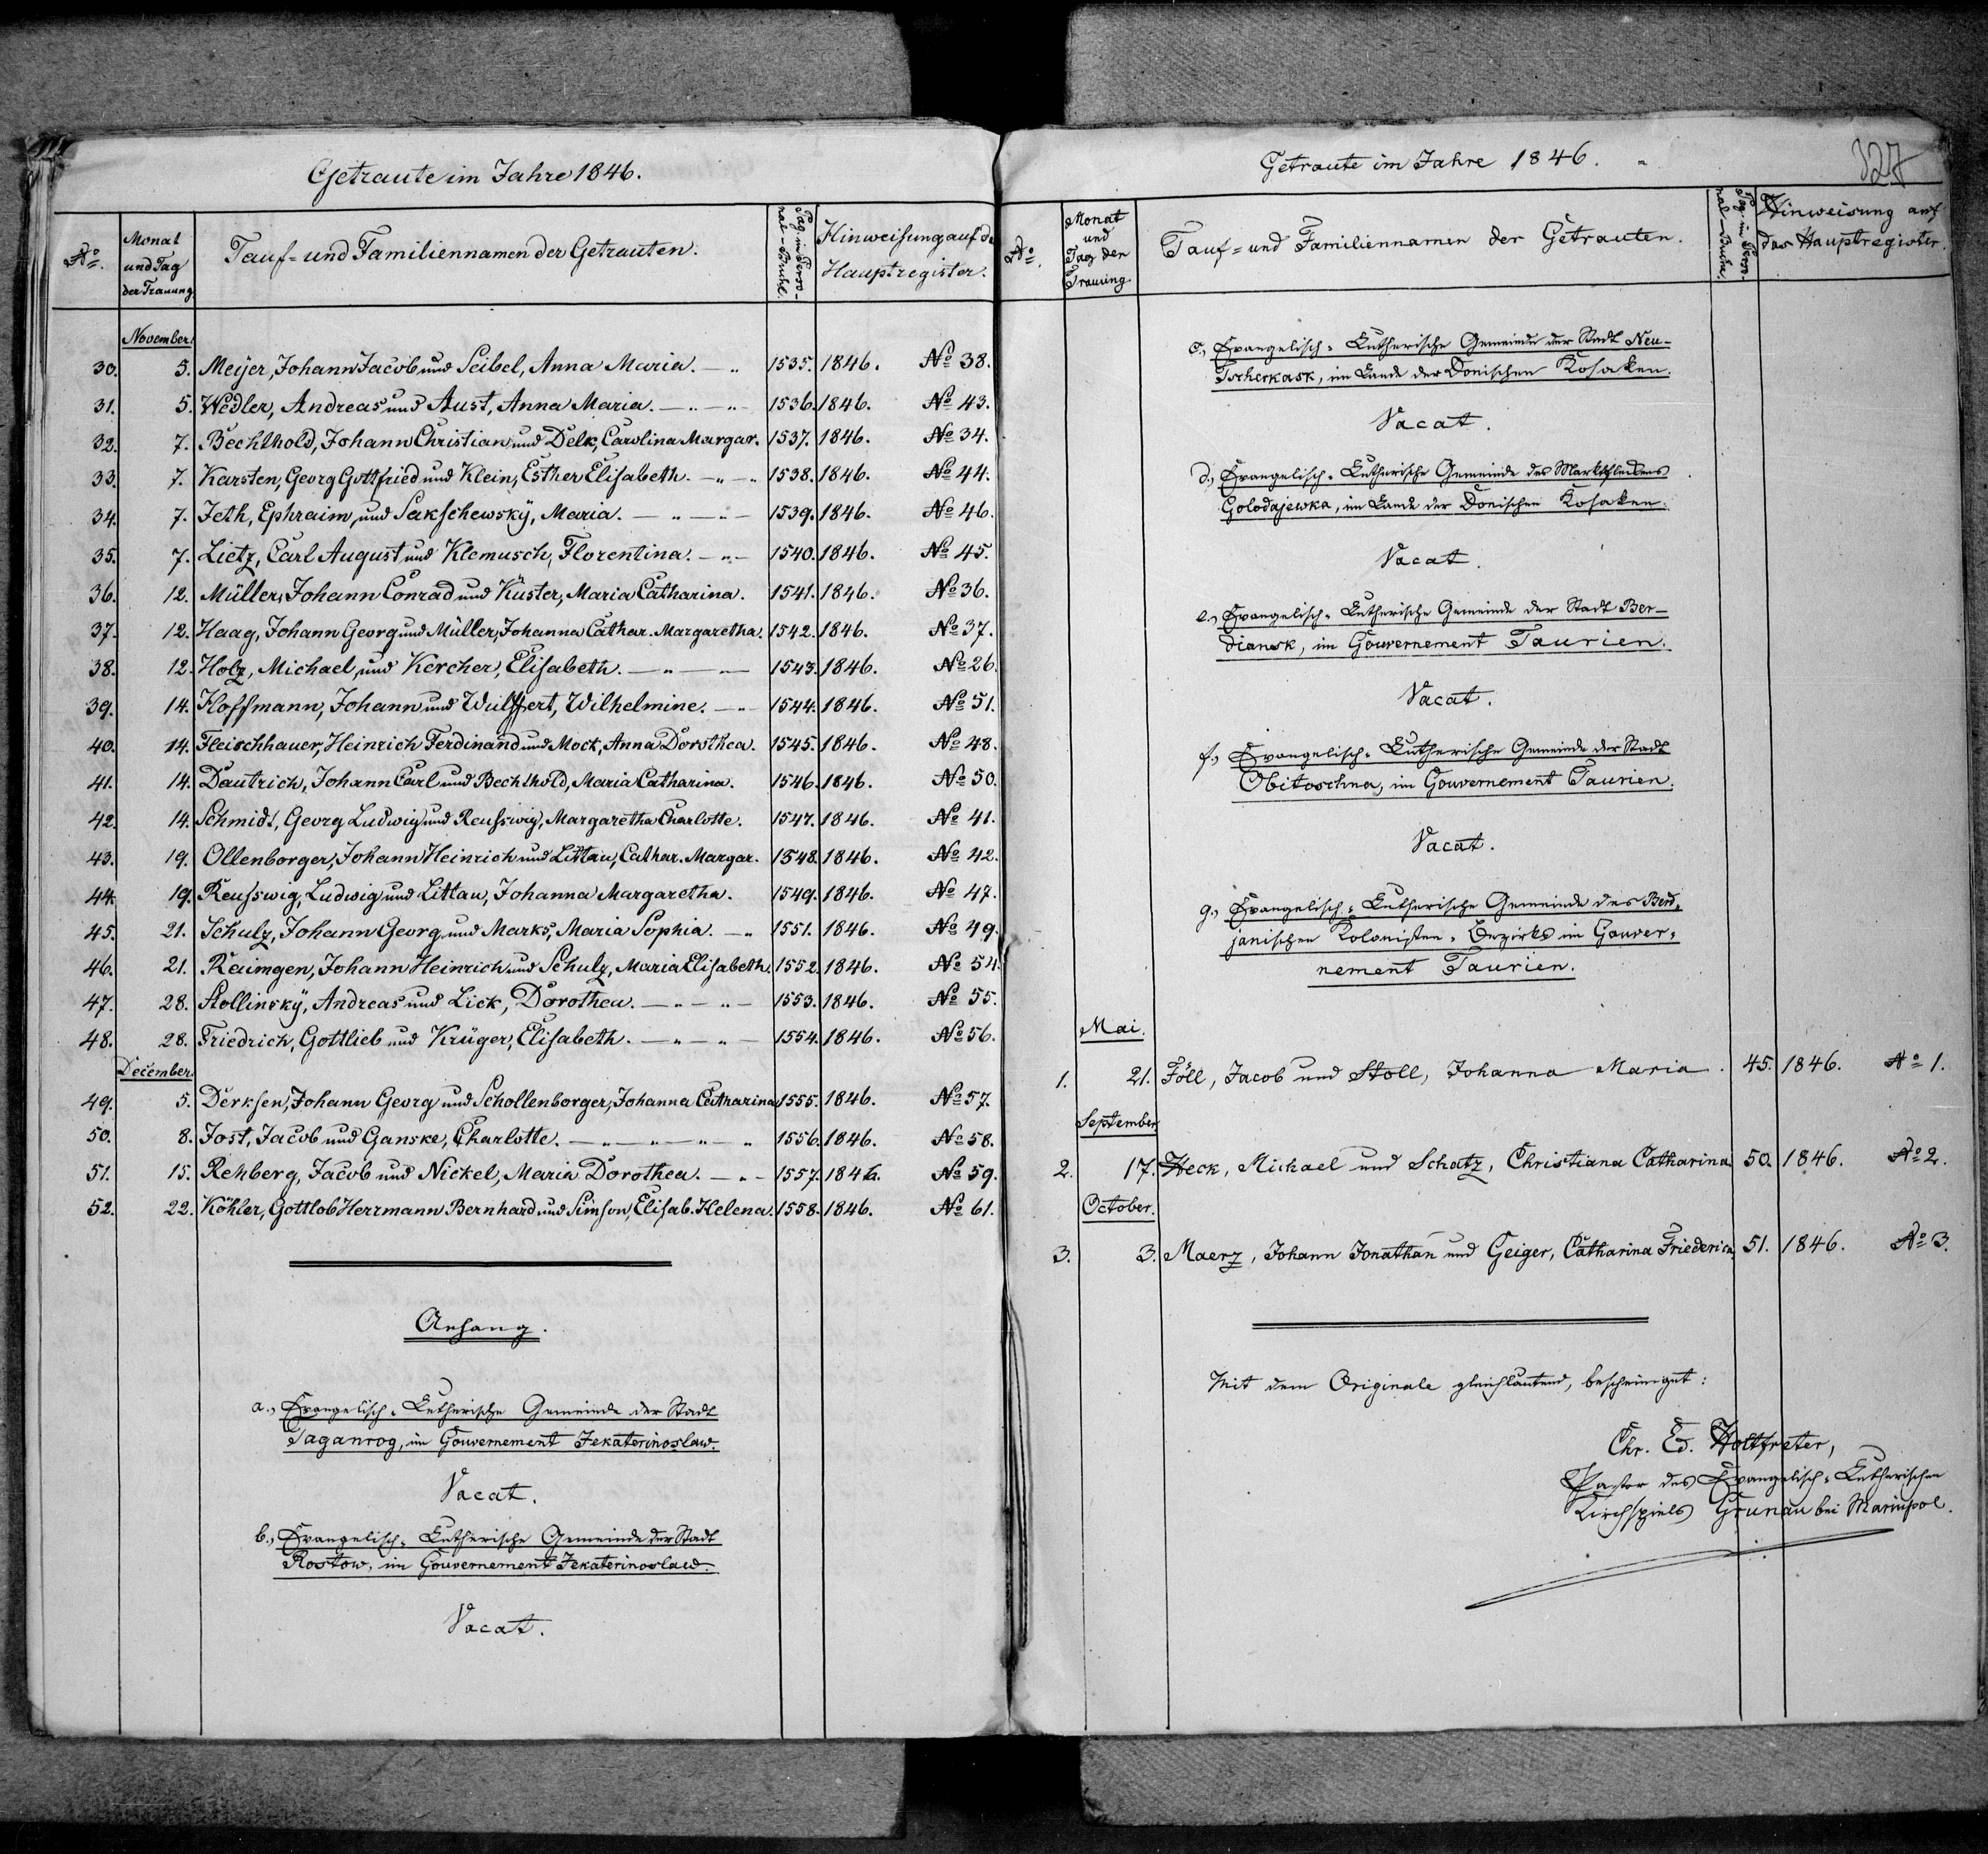 Getraute im Jahre 1846.
No. Monat und Tag der Trauung Tauf- und Familiennamen der Getrauten. Pag. im Perso-nal-Buche. Hinweisung auf d Hauptregister.
November.
30. 5. Meyer, Johann Jacob und Seibel, Anna Maria. — „ 1535. 1846. No 38.
31. 5. Wedler, Andreas und Aust, Anna Maria. — „ — „ 1536. 1846. No 43.
32. 7. Bechthold, Johann Christian und Delk, Carolina Margar. 1537. 1846. No 34.
33. 7. Karsten, Georg Gottfried und Klein, Esther Elisabeth. — „ — „ 1538. 1846. No 44.
34. 7. Jeth, Ephraim, und Sakschewsky, Maria. — „ — „ — 1539. 1846. No 46.
35. 7. Lietz, Carl August und Klemusch, Florentina. — „ — 1540. 1846. No 45.
36. 12. Müller, Johann Conrad und Küster, Maria Catharina. 1541. 1846. No 36.
37. 12. Haag, Johann Georg und Müller, Johanna Cathar. Margaretha. 1542. 1846. No 37.
38. 12. Holz, Michael, und Kercher, Elisabeth. — „ — „ — 1543. 1846. No 26.
39. 14. Hoffmann, Johann und Wulffert, Wilhelmine. — „ — 1544. 1846. No 51.
40. 14. Fleischhauer, Heinrich Ferdinand und Mock, Anna Dorothea. 1545. 1846. No 48.
41. 14. Dautrich, Johann Carl und Bechthold, Maria Catharina. 1546. 1846. No 50.
42. 14. Schmidt, Georg Ludwig und Reusswig, Margaretha Charlotte. 1547. 1846. No 41.
43. 19. Ollenborger, Johann Heinrich und Littau, Cathar. Margar. 1548. 1846. No 42.
44. 19. Reusswig, Ludwig und Littau, Johanna Margaretha. 1549. 1846. No 47.
45. 21. Schulz, Johann Georg und Marks, Maria Sophia. — „ 1551. 1846. No 49.
46. 21. Raimgen, Johann Heinrich und Schulz, Maria Elisabeth. 1552. 1846. No 54.
47. 28. Stollinsky, Andreas und Lick, Dorothea. — „ — „ — 1553. 1846. No 55.
48. 28. Friedrich, Gottlieb und Krüger, Elisabeth. — „ — „ — 1554. 1846. No 56.
December.
49. 5. Derksen, Johann Georg und Schollenborger, Johanna Catharina 1555. 1846. No 57.
50. 8. Jost, Jacob und Ganske, Charlotte. — „ — „ — „ — „ 1556. 1846. No 58.
51. 15. Rehberg, Jacob und Nickel, Maria Dorothea. — „ — 1557. 1846. No 59.
52. 22. Köhler, Gottlob Herrmann Bernhard und Simson, Elisab. Helena. 1558. 1846. No 61.
Anhang.
a., Evangelisch-Lutherische Gemeinde der Stadt
Taganrog, im Gouvernement Jekaterinoslaw.
Vacat.
b., Evangelisch-Lutherische Gemeinde der Stadt
Rostow, im Gouvernement Jekaterinoslaw.
Vacat.
Getraute im Jahre 1846.
127
No. Monat und Tag der Trauung Tauf- und Familiennamen der Getrauten. Pag. im Perso-nal-Buche. Hinweisung auf das Hauptregister.
c., Evangelisch-Lutherische Gemeinde der Stadt Neu-
Tscherkask, im Lande der Donischen Kosaken.
Vacat.
d., Evangelisch-Lutherische Gemeinde des Marktfleckens
Golodajewka, im Lande der Donischen Kosaken.
Vacat.
e., Evangelisch-Lutherische Gemeinde der Stadt Ber-
diansk, im Gouvernement Taurien.
Vacat.
f., Evangelisch-Lutherische Gemeinde der Stadt
Obitoschna, im Gouvernement Taurien.
Vacat.
g., Evangelisch-Lutherische Gemeinde des Berd-
janischen Kolonisten-Bezirks im Gouver-
nement Taurien.
Mai.
1. 21. Föll, Jacob und Stoll, Johanna Maria. 45. 1846. No 1.
September.
2. 17. Heck, Michael und Schatz, Christiana Catharina 50. 1846. No 2.
October.
3. 3. Maerz, Johann Jonathan und Geiger, Catharina Friederica. 51. 1846. No 3.
Mit dem Originale gleichlautend, bescheinigt:
Chr. Ed. Holtfreter,
Pastor des Evangelisch-Lutherischen
Kirchspiels Grunau bei Mariupol.